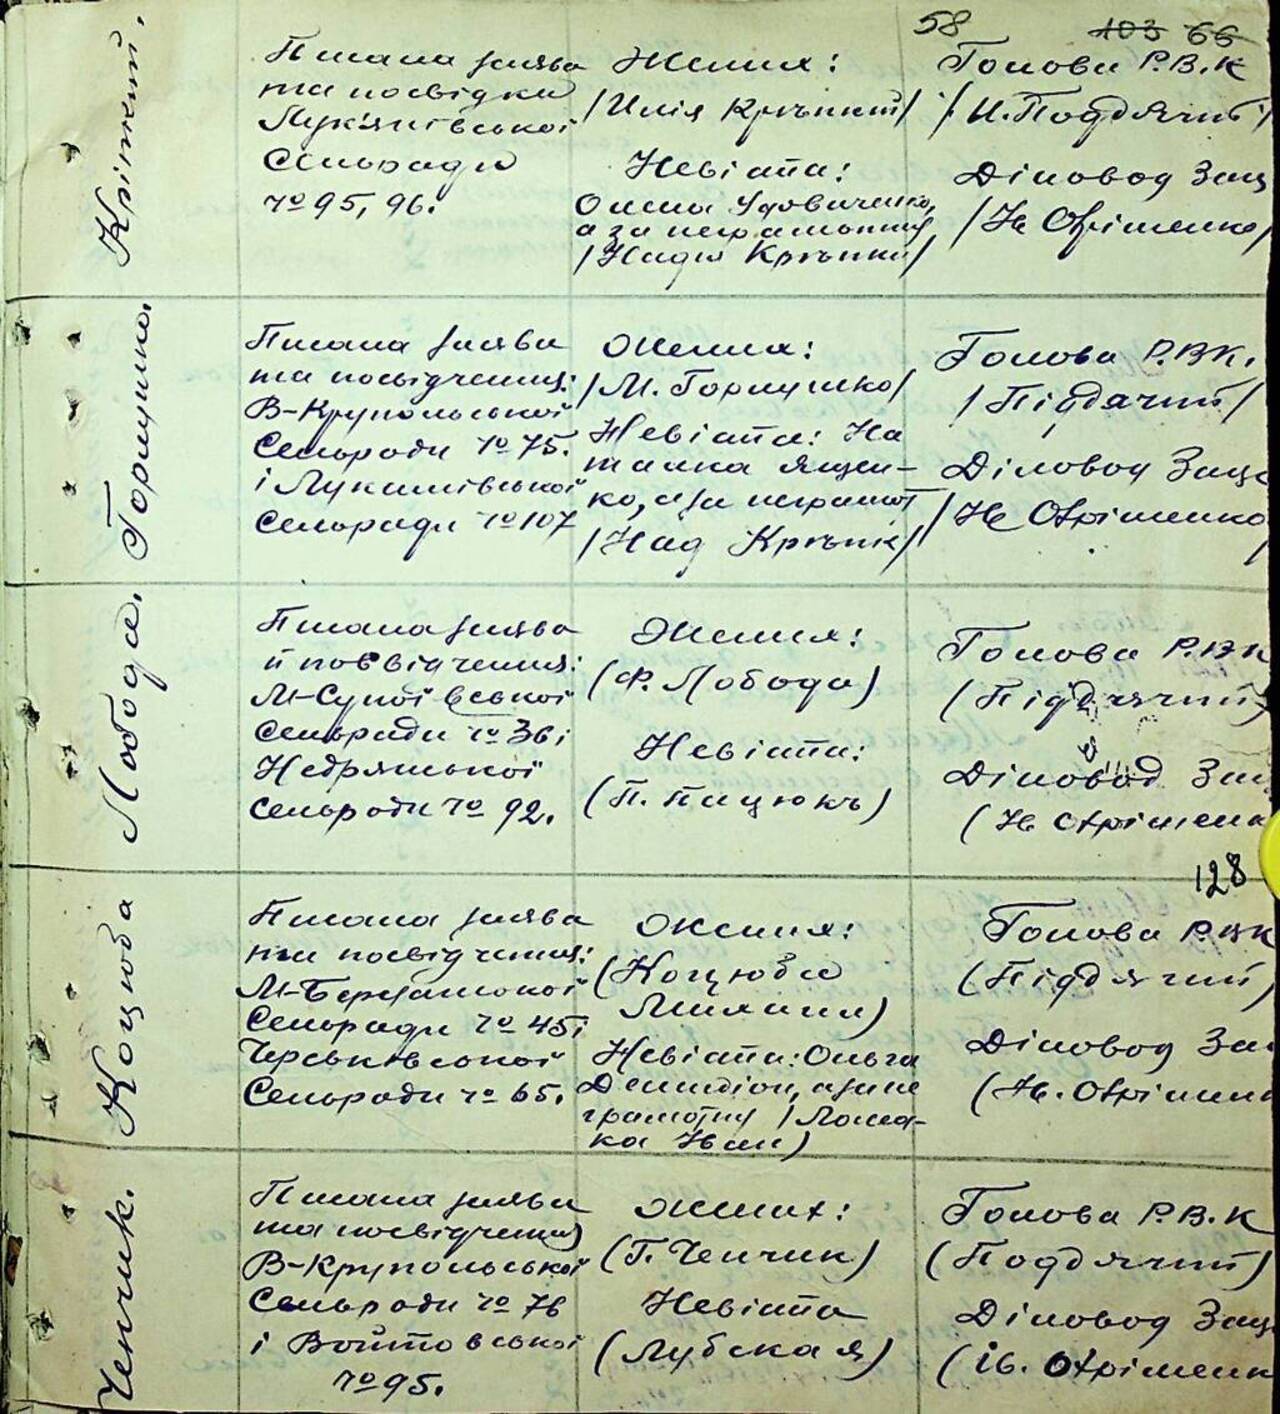 58 103 66
Кріпкий.
Писана заява
та посвідки
Лук'янівської
Сельради
№ 95, 96.
Жених:
/Илія Кряпкий/
Невіста:
Олена Удовиченко,
а за неграмотну
/Надія Кряпки/
Голова Р.В.К
/И. Подд'ячий/
Діловод Загс
/Ів Охріменко/
Горпушко.
Писана заява
та посвідчения:
В-Крупольської
Сельради № 75.
і Лукашівської
Сельради № 107
Жених:
/М. Горпушко/
Невіста: На
талка Ященко-
ко, а за неграмот
/Над Кряпк/
Голова Р.ВК.
/Піддячий/
Діловод Загс
/Ів Охріменко
Лобода.
Писана заява
й посвідчения:
М-Супоївської
Сельради № 36 і
Недрянської
Сельради № 92.
Жених:
(Ф. Лобода)
Невіста:
(П. Пацюкъ)
Голова Р.ВК
(Піддячий)
Діловод Заг
(Ів Охрімен
128
Коцюба
Писана заява
та посвідчения:
М-Березанської
Сельради № 45 і
Черськівської
Сельради № 65.
Жених:
(Коцюба
Михайл)
Невіста: Ольга
а за не
грамотну /Лома-
ка Иван)
Голова Р.ВК
(Піддячий)
Діловод За
(Ів. Охрімен
Чепчик.
Писана заява
та посвідчения
В-Крупольської
Сельради № 76
і Войтовської
№ 95.
Жених:
(Г. Чепчик)
Невіста
(Лубская)
Голова Р.В.К
(Поддячий)
Діловод Загс
(Ів. Охріменк